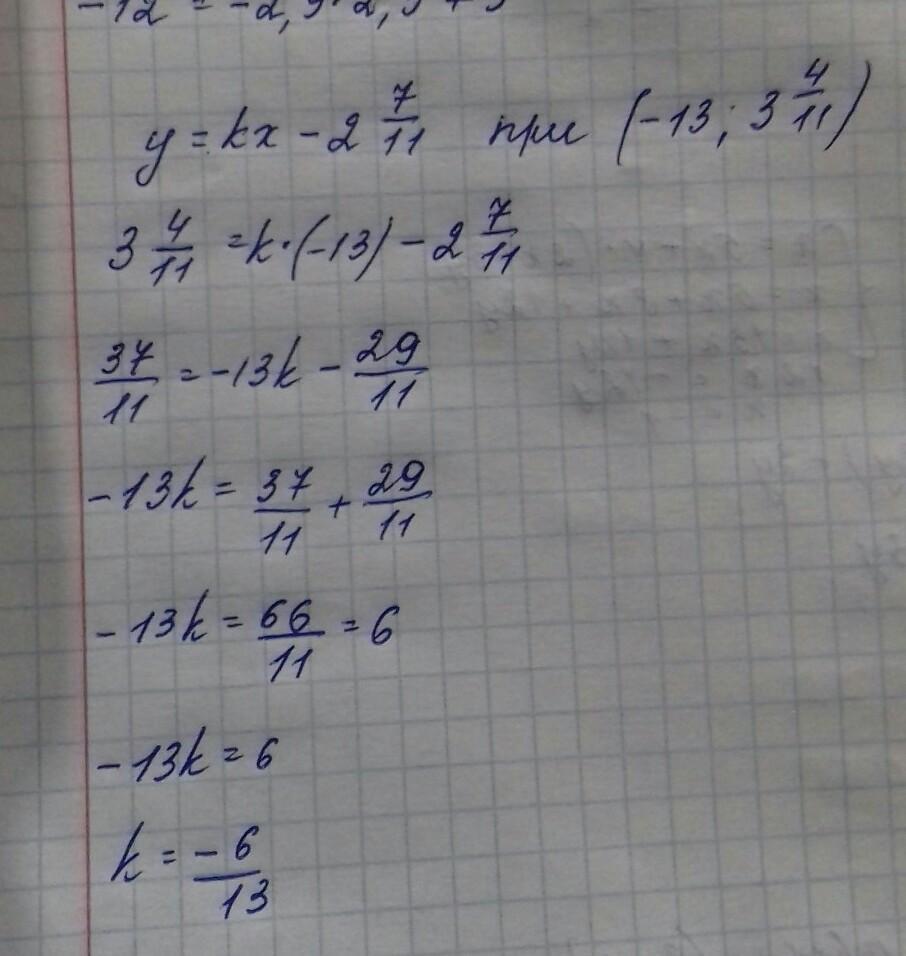 y = kx - 2 7/11 при (-13; 3 4/11)
3 4/11 = k·(-13) - 2 7/11
37/11 = -13k - 29/11
-13k = 37/11 + 29/11
-13k = 66/11 = 6
-13k = 6
k = -6/13